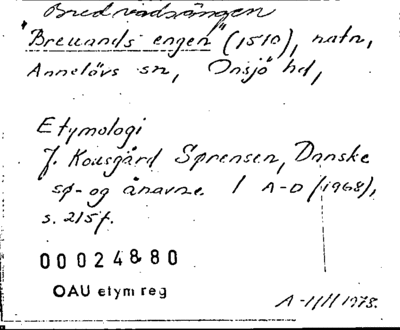 Bredvadsängen
"Breuands engen" (1510), natn,
Annelövs sn, Onsjö hd,
Etymologi
J. Kousgård Sørensen, Danske
sø- og ånavne 1 A-D (1968),
s. 215f.
00024880
OAU etym reg
1978.